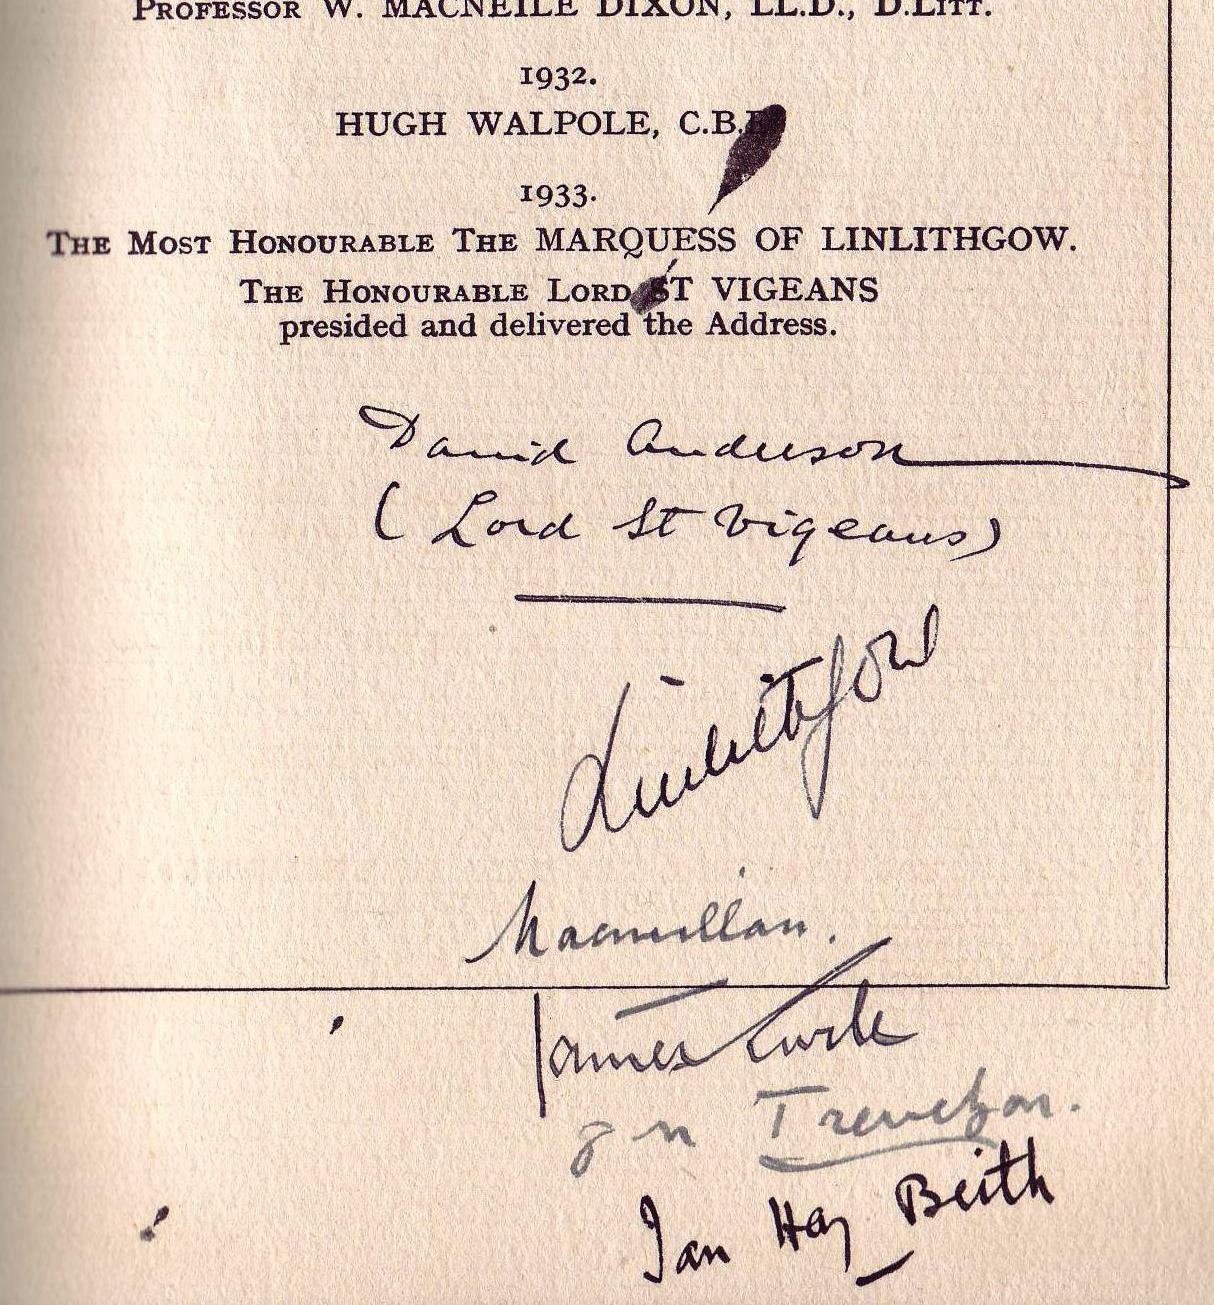 PROFESSOR W. MACNEILE DIXON, LL.D., D.LITT.
1932.
HUGH WALPOLE, C.B.E
1933.
THE MOST HONOURABLE THE MARQUESS OF LINLITHGOW.
THE HONOURABLE LORD ST VIGEANS
presided and delivered the Address.
David Anderson
(Lord St Vigeans)
Linlithgow
Macmillan.
James Curle
Ian Hay Beith